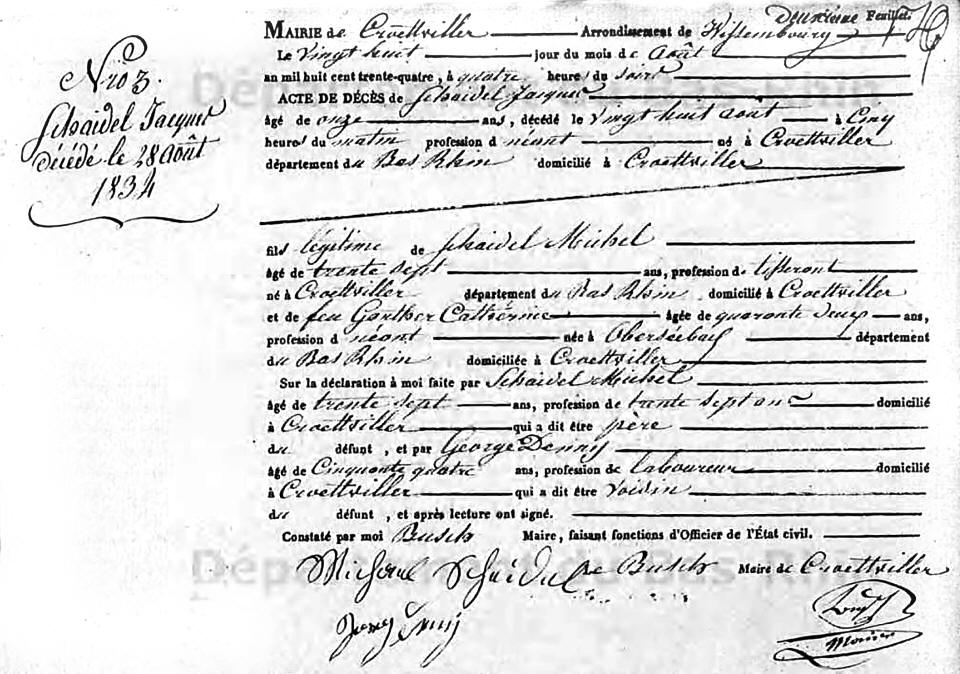 deuxième Feuillet.
MAIRIE de Croettviller Arrondissement de Wissembourg
Le vingt huit jour du mois de Août
an mil huit cent trente-quatre, à quatre heures du soir
ACTE DE DÉCÈS de Schaidel Jacques
âgé de onze ans, décédé le vingt huit août à Cinq
heures du matin profession d néant né à Croettviller
département du Bas Rhin domicilié à Croettviller
Nro 3.
Schaidel Jacques
décédé le 28 Août
1834
fils légitime de Schaidel Michel
âgé de trente sept ans, profession de tisseront
né à Croettviller département du Bas Rhin domicilié à Croettviller
et de feu Ganther Cathérine âgée de quaronte deux ans,
profession d néant née à Oberséebach département
du Bas Rhin domiciliée à Croettviller
Sur la déclaration à moi faite par Schaidel Michel
âgé de trente sept ans, profession de trente sept ans domicilié
à Croettviller qui a dit être père
du défunt, et par George Denny
âgé de Cinquante quatre ans, profession de laboureur domicilié
à Croettviller qui a dit être voisin
du défunt, et après lecture ont signé.
Constaté par moi Busch Maire, faisant fonctions d'Officier de l'État civil.
Michael Scheidel Busch Maire de Croettviller
Département du Bas-Rhin
Département du Bas-Rhin